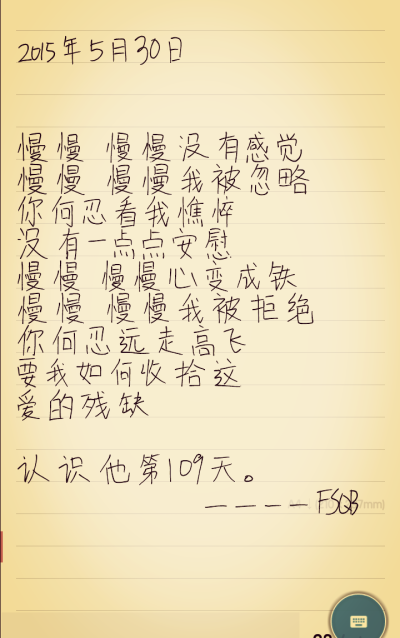 2015年5月30日
慢慢 慢慢没有感觉
慢慢 慢慢我被忽略
你何忍看我憔悴
没有一点点安慰
慢慢 慢慢心变成铁
慢慢 慢慢我被拒绝
你何忍远走高飞
要我如何收拾这
爱的残缺
认识他第109天。
————FSQB